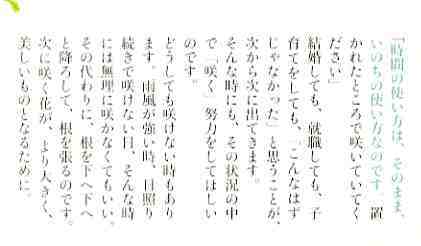 「時間の使い方は、そのまま、
いのちの使い方なのです。置
かれたところで咲いていてく
ださい」
結婚しても、就職しても、子
育てをしても、「こんなはず
じゃなかった」と思うことが、
次から次に出てきます。
そんな時にも、その状況の中
で「咲く」努力をしてほしい
のです。
どうしても咲けない時もあり
ます。雨風が強い時、日照り
続きで咲けない日、そんな時
には無理に咲かなくてもいい。
その代わりに、根を下へ下へ
と降ろして、根を張るのです。
次に咲く花が、より大きく、
美しいものとなるために。